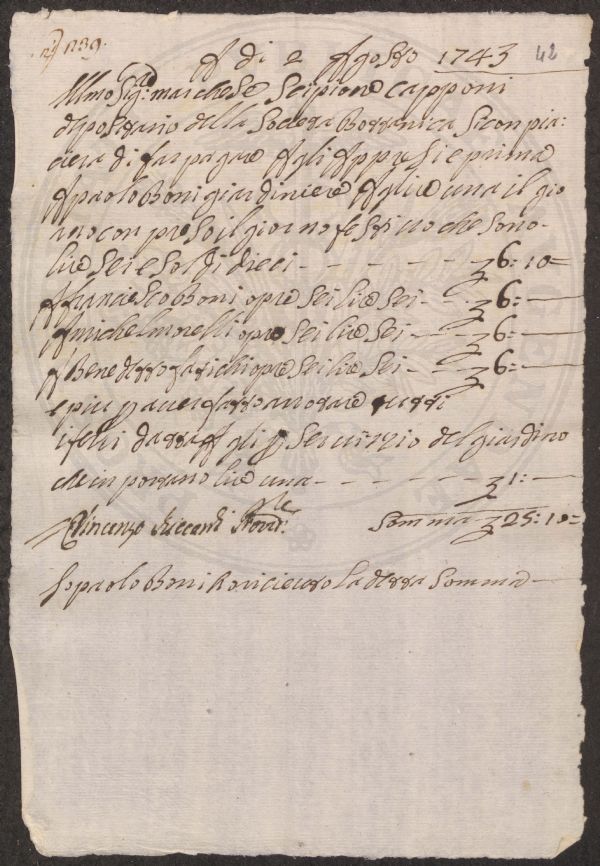 N 239. 42
A di 2 Agosto 1743
Illmo Sig:re marchese Scipione Capponi
depositario della Società Bottanica Si conpia:
cera di far pagare Agli Appresi e prima
A paolo Boni giardiniere A lire una il gio
rno conpreso il giorno festivo che sono
lire Sei e Soldi dieci - - - - - 6: 10
A francescoBoni opre Sei lire Sei - 6: —
A michel opre Sei lire Sei - 6: —
A Benedetto opre Sei lire Sei - 6: —
e piu p aver fatto arrotare tutti
i feri da p Servizzio del giardino
che inportano lire una - - - - - 1: —
Vincenzo Riccardi Somma 25: 10
Io paolo Boni o riceuto La detta Somma —